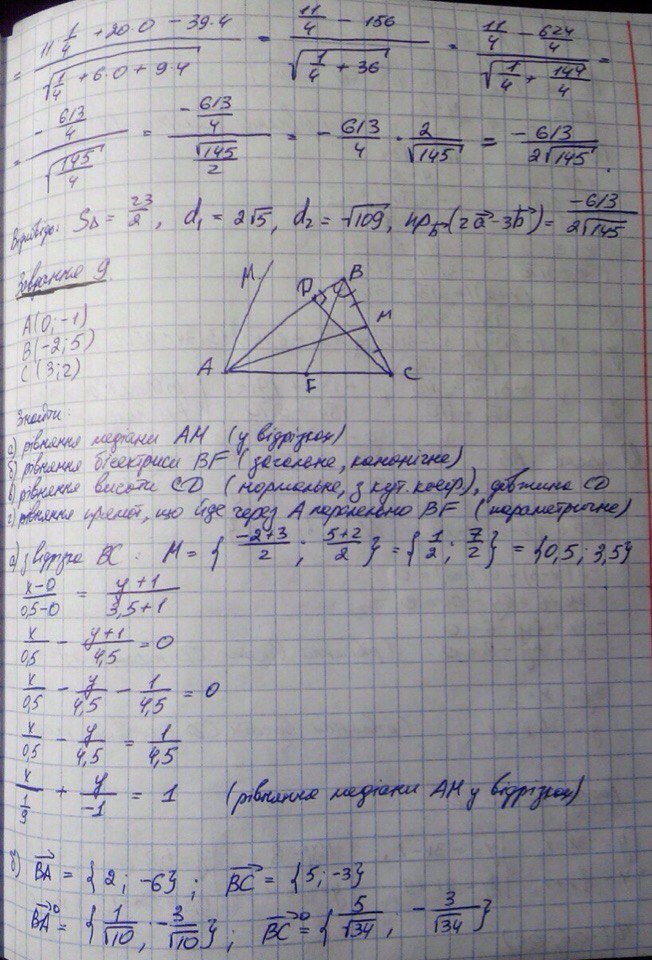 = (11 1/4 + 20·0 − 39·4) / √(1/4 + 6·0 + 9·4) = (11/4 − 156) / √(1/4 + 36) = (11/4 − 624/4) / √(1/4 + 144/4) =
= (−613/4) / √(145/4) = (−613/4) / (√145/2) = −613/4 · 2/√145 = −613/(2√145).
Відповідь: S△ = 23/2, d₁ = 2√5, d₂ = √109, пр_b (2a⃗−3b⃗) = −613/(2√145)
Завдання 9.
M D B
A(0;−1)
B(−2;5)
C(3;2)
M
A F C
Знайти:
а) рівняння медіани AM (у відрізках)
б) рівняння бісектриси BF (загальне, канонічне)
в) рівняння висоти CD (нормальне, з кут. коеф.), довжина CD
г) рівняння прямої, що йде через A паралельно BF (параметричне)
а) з відрізка BC: M = {(−2+3)/2; (5+2)/2} = {1/2; 7/2} = {0,5; 3,5}
(x−0)/(0,5−0) = (y+1)/(3,5+1)
x/0,5 − (y+1)/4,5 = 0
x/0,5 − y/4,5 − 1/4,5 = 0
x/0,5 − y/4,5 = 1/4,5
x/(1/9) + y/−1 = 1 (рівняння медіани AM у відрізках)
б) BA⃗ = {2; −6}; BC⃗ = {5; −3}
BA⃗° = {1/√10; −3/√10}; BC⃗° = {5/√34; −3/√34}